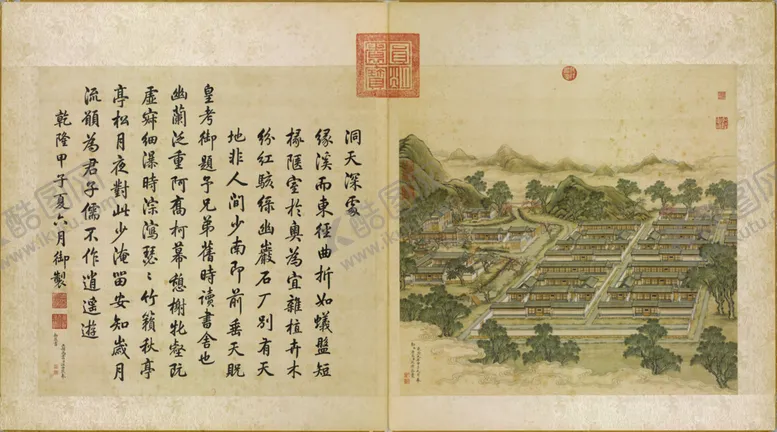 洞天深處
緣溪而東徑曲折如蟻盤短
椽陋室於奧為宜雜植卉木
紛紅駭綠幽巖石厂別有天
地非人間少南即前垂天貺
皇考御題予兄弟舊時讀書舍也
幽蘭泛重阿喬柯幕憩榭牝壑既
虛寂細瀑時淙瀉瑟〻竹籟秋亭
亭松月夜對此少淹畱安知歲月
流願為君子儒不作逍遙遊
乾隆甲子夏六月御製